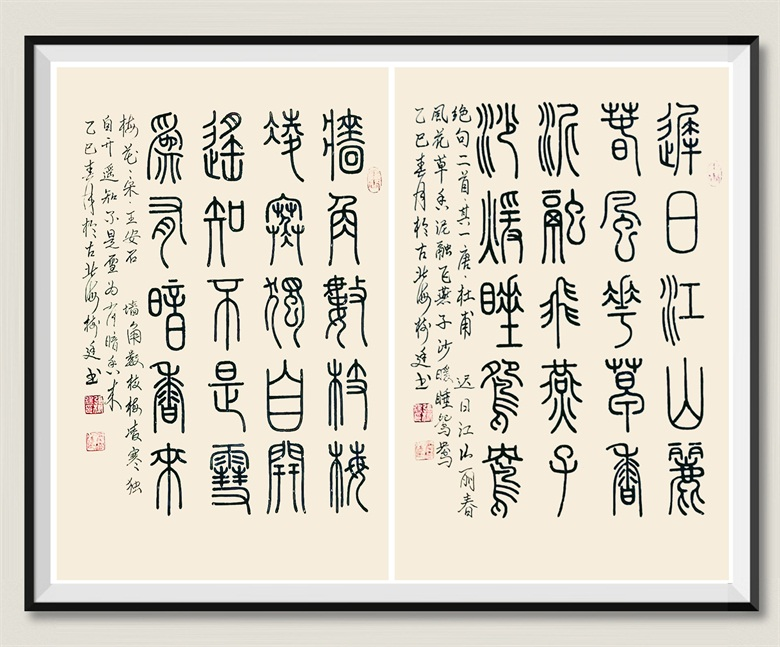 遲日江山麗
春風華草香
泥融飛燕子
沙暖睡鴛鴦
绝句二首·其一唐·杜甫 迟日江山丽春
風花草香泥融飞燕子沙暖睡鸳鸯
乙巳春月於古北海树廷书
牆角數枝梅
凌寒獨自開
遙知不是雪
爲有暗香來
梅花·宋·王安石 墙角数枝梅凌寒独
自开遥知不是雪为有暗香来
乙巳春月於古北海树廷书